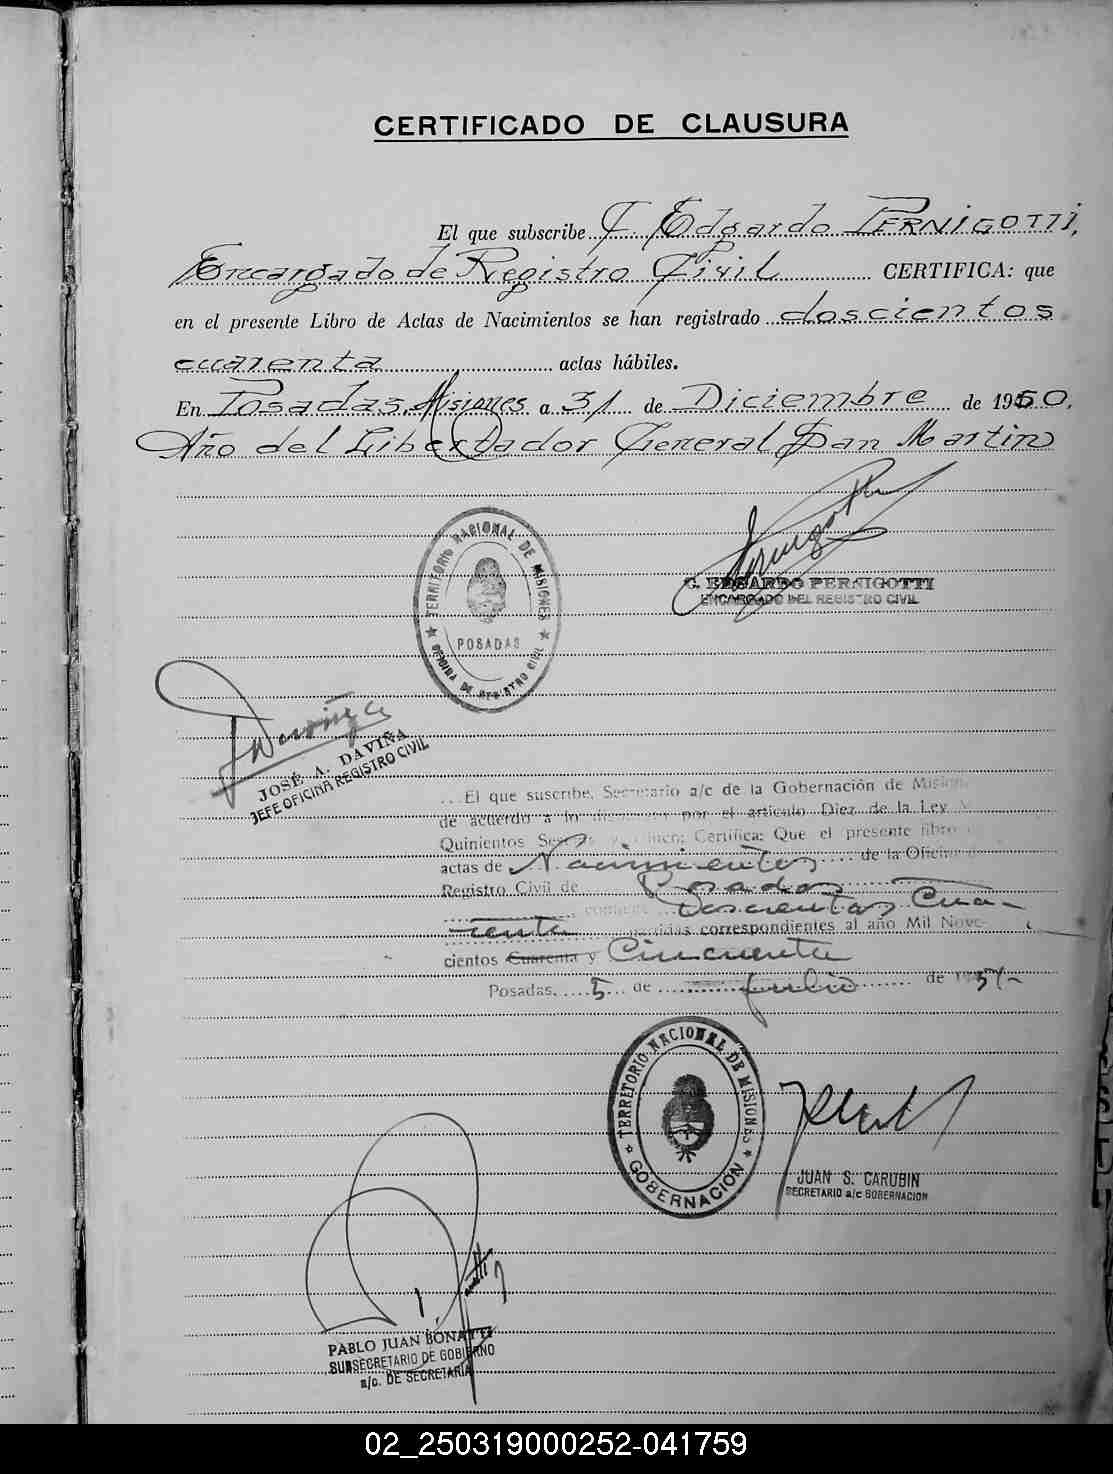 CERTIFICADO DE CLAUSURA
El que subscribe G. Edgardo PERNIGOTTI,
Encargado de Registro Civil CERTIFICA: que
en el presente Libro de Actas de Nacimientos se han registrado doscientos
cuarenta actas hábiles.
En Posadas, Misiones a 31 de Diciembre de 1950.
Año del Libertador General San Martin
TERRITORIO NACIONAL DE MISIONES
POSADAS
OFICINA DE REGISTRO CIVIL
G. EDGARDO PERNIGOTTI
ENCARGADO DEL REGISTRO CIVIL
JOSÉ A. DAVIÑA
JEFE OFICINA REGISTRO CIVIL
El que suscribe, Secretario a/c de la Gobernación de Misiones
de acuerdo a lo dispuesto por el artículo Diez de la Ley
Quinientos Sesenta y cinco; Certifica: Que el presente libro
actas de Nacimientos de la Oficina
Registro Civil de Posadas
contiene Doscientas Cua-
renta partidas correspondientes al año Mil Nove-
cientos Cuarenta y Cincuenta
Posadas, 5 de Julio de 1951-
TERRITORIO NACIONAL DE MISIONES
GOBERNACIÓN
JUAN S. CARUBIN
SECRETARIO a/c GOBERNACION
PABLO JUAN BONATTI
SUBSECRETARIO DE GOBIERNO
a/c. DE SECRETARIA
02_250319000252-041759